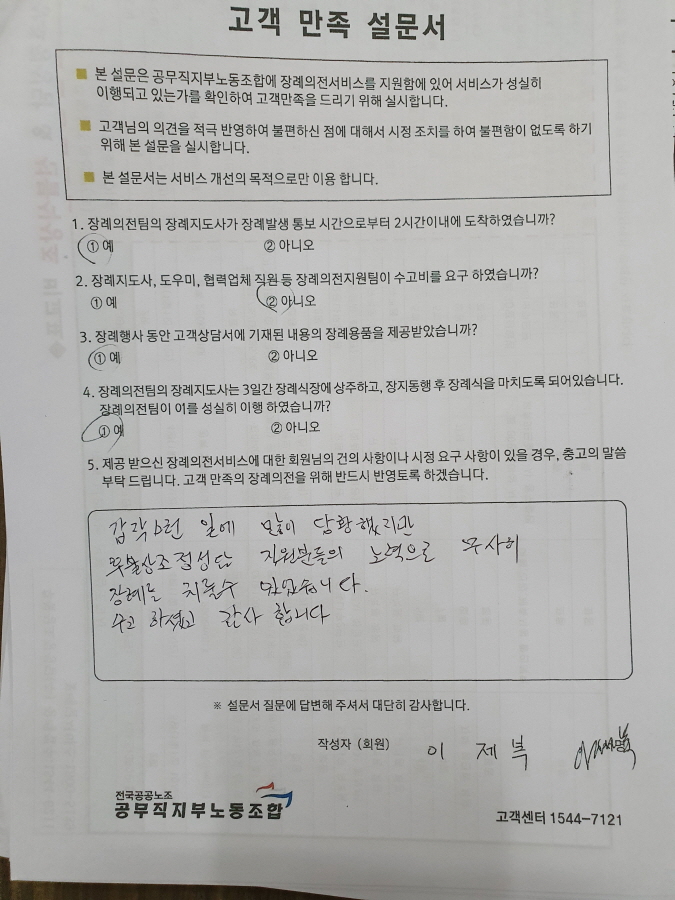 고객 만족 설문서
본 설문은 공무직지부노동조합에 장례의전서비스를 지원함에 있어 서비스가 성실히
이행되고 있는가를 확인하여 고객만족을 드리기 위해 실시합니다.
고객님의 의견을 적극 반영하여 불편하신 점에 대해서 시정 조치를 하여 불편함이 없도록 하기
위해 본 설문을 실시합니다.
본 설문서는 서비스 개선의 목적으로만 이용 합니다.
1. 장례의전팀의 장례지도사가 장례발생 통보 시간으로부터 2시간이내에 도착하였습니까?
① 예 ② 아니오
2. 장례지도사, 도우미, 협력업체 직원 등 장례의전지원팀이 수고비를 요구 하였습니까?
① 예 ② 아니오
3. 장례행사 동안 고객상담서에 기재된 내용의 장례용품을 제공받았습니까?
① 예 ② 아니오
4. 장례의전팀의 장례지도사는 3일간 장례식장에 상주하고, 장지동행 후 장례식을 마치도록 되어있습니다.
장례의전팀이 이를 성실히 이행 하였습니까?
① 예 ② 아니오
5. 제공 받으신 장례의전서비스에 대한 회원님의 건의 사항이나 시정 요구 사항이 있을 경우, 충고의 말씀
부탁 드립니다. 고객 만족의 장례의전을 위해 반드시 반영토록 하겠습니다.
갑작스런 일에 많이 당황했지만
직원분들의 노력으로 무사히
장례를 치를수 있었습니다.
수고 하셨고 감사 합니다
※ 설문서 질문에 답변해 주셔서 대단히 감사합니다.
작성자 (회원) 이 제
전국공공노조
공무직지부노동조합
고객센터 1544-7121